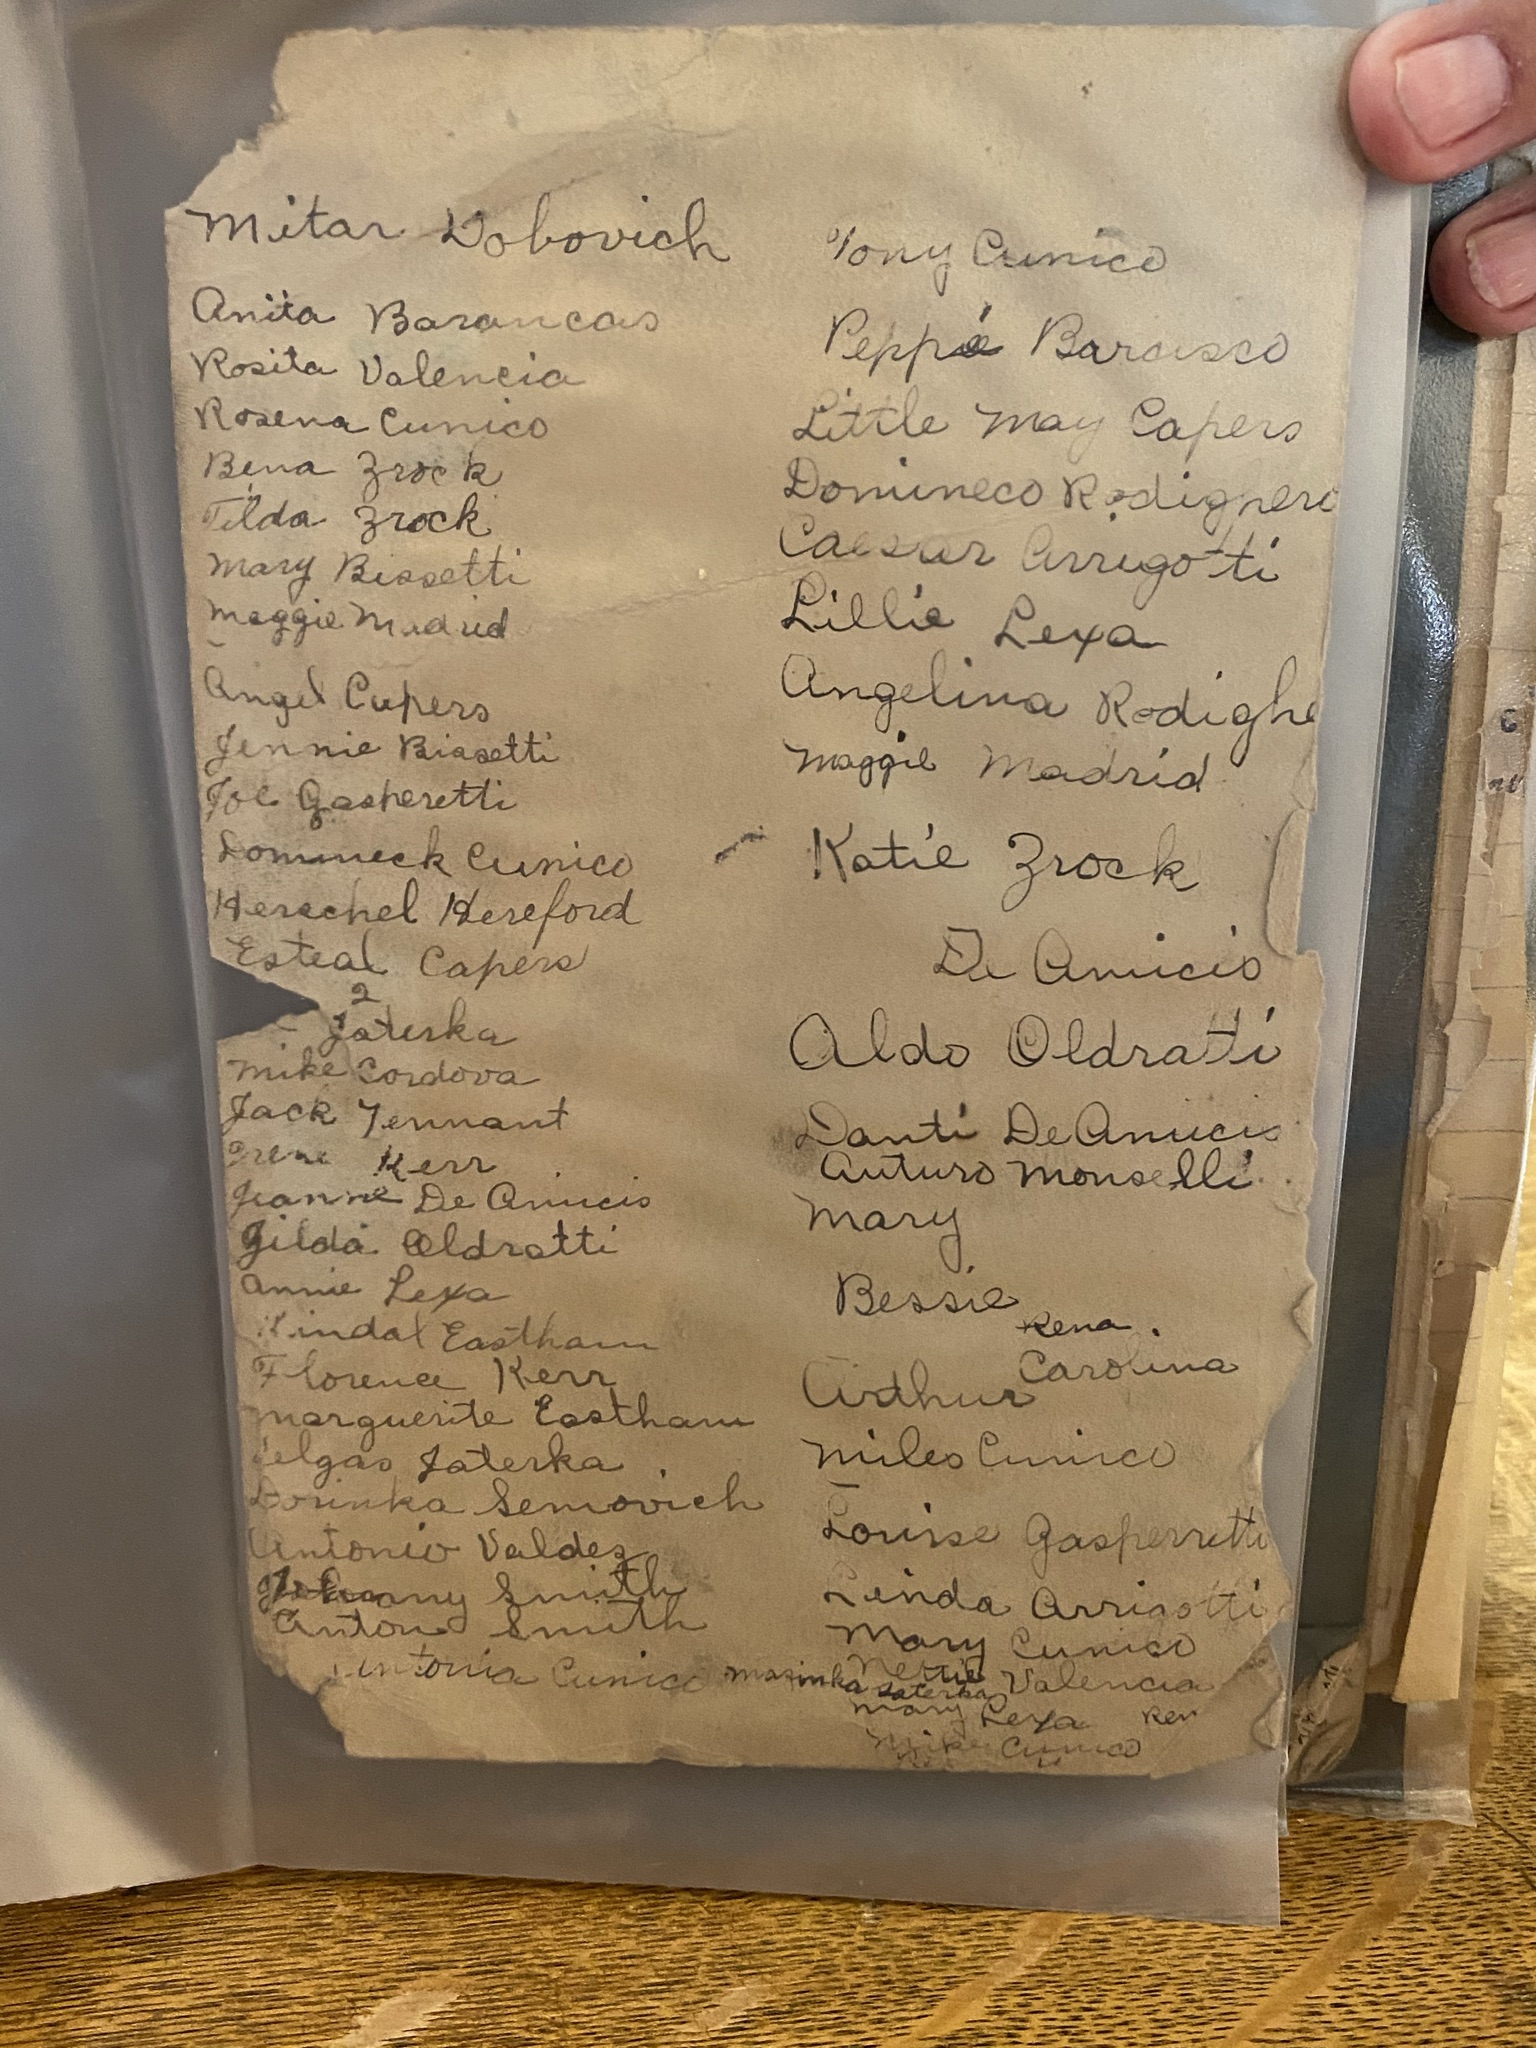 Mitar Vobovich
Anita Barancas
Rosita Valencia
Rosena Cunico
Bena Zrock
Tilda Zrock
Mary Bissetti
Maggie Madrid
Angel Capers
Jennie Bissetti
Joe Gasperetti
Dommneck Cunico
Herschel Hereford
Esteal Capers
2
Jaterka
Mike Cordova
Jack Tennant
Irene Kerr
Jeanne De Amicis
Gilda Oldratti
Annie Lexa
Kindal Eastham
Florence Kerr
Marguerite Eastham
Jaterka
Semovich
Antonio Valdez
Johnny Smith
Anton Smith
Antonia Cunico
Tony Cunico
Peppie Barcisco
Little May Capers
Domineco Rodignero
Caesar Arrigotti
Lillie Lexa
Angelina Rodighe
Maggie Madrid
Katie Zrock
De Amicis
Aldo Oldratti
Danti De Amicis
Arturo Monselli
Mary
Bessie
Rena
Carolina
Arthur
Miles Cunico
Louise Gasperretti
Linda Arrigotti
Mary Cunico
Nettie Valencia
Masinka Jaterka
Mary Lexa
Ren
Mike Cunico